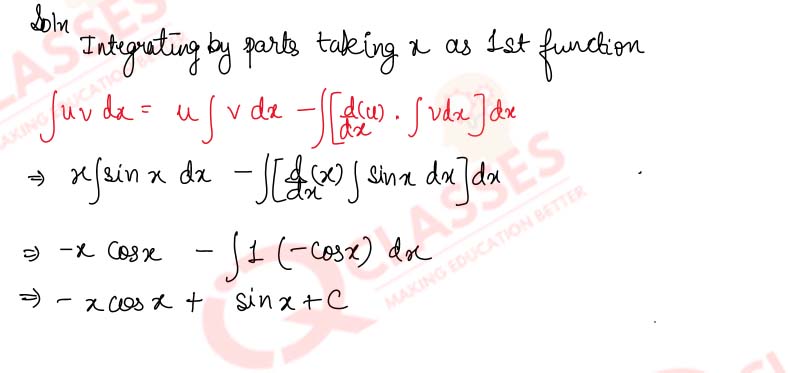 Soln
Integrating by parts taking x as 1st function
∫uv dx = u∫v dx - ∫[d/dx(u) · ∫vdx]dx
⇒ x∫sin x dx - ∫[d/dx(x)∫sinx dx]dx
⇒ -x cosx - ∫1 (-cosx) dx
⇒ - x cos x + sinx + C
CLASSES
MAKING EDUCATION BETTER
CLASSES
MAKING EDUCATION BETTER